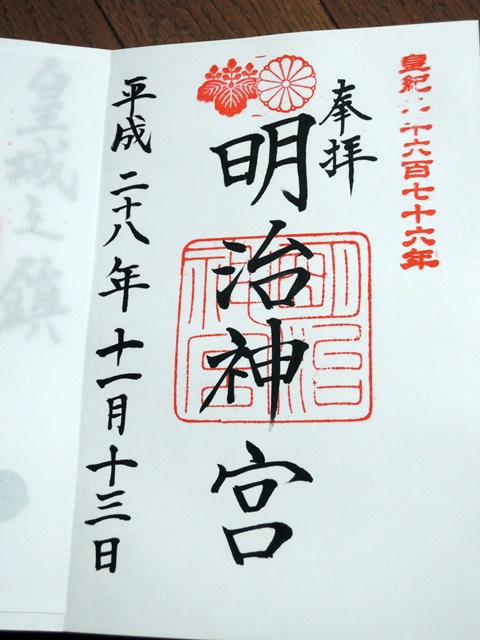 皇紀二千六百七十六年
奉拝
明治神宮
明治神宮
平成二十八年十一月十三日
皇城之鎮